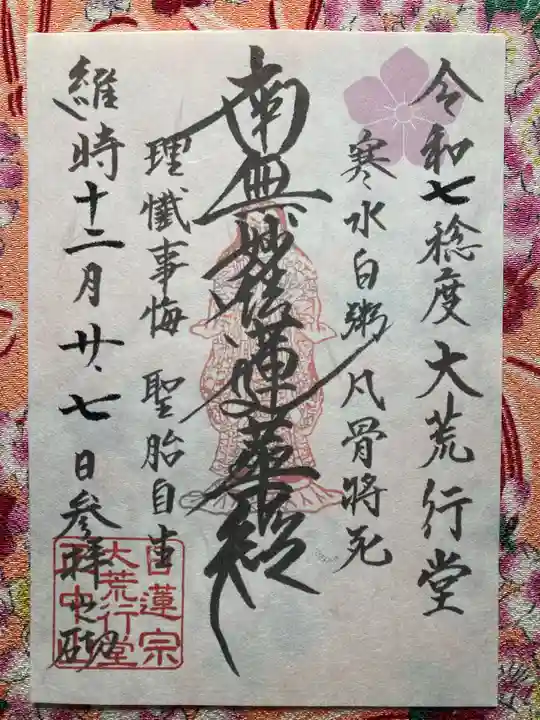 令和七稔度大荒行堂
寒水白粥凡骨将死
南無妙法蓮華経
理懺事悔 聖胎自生
維時十二月廿七日参拝之砌
日蓮宗
大荒行堂
正中山